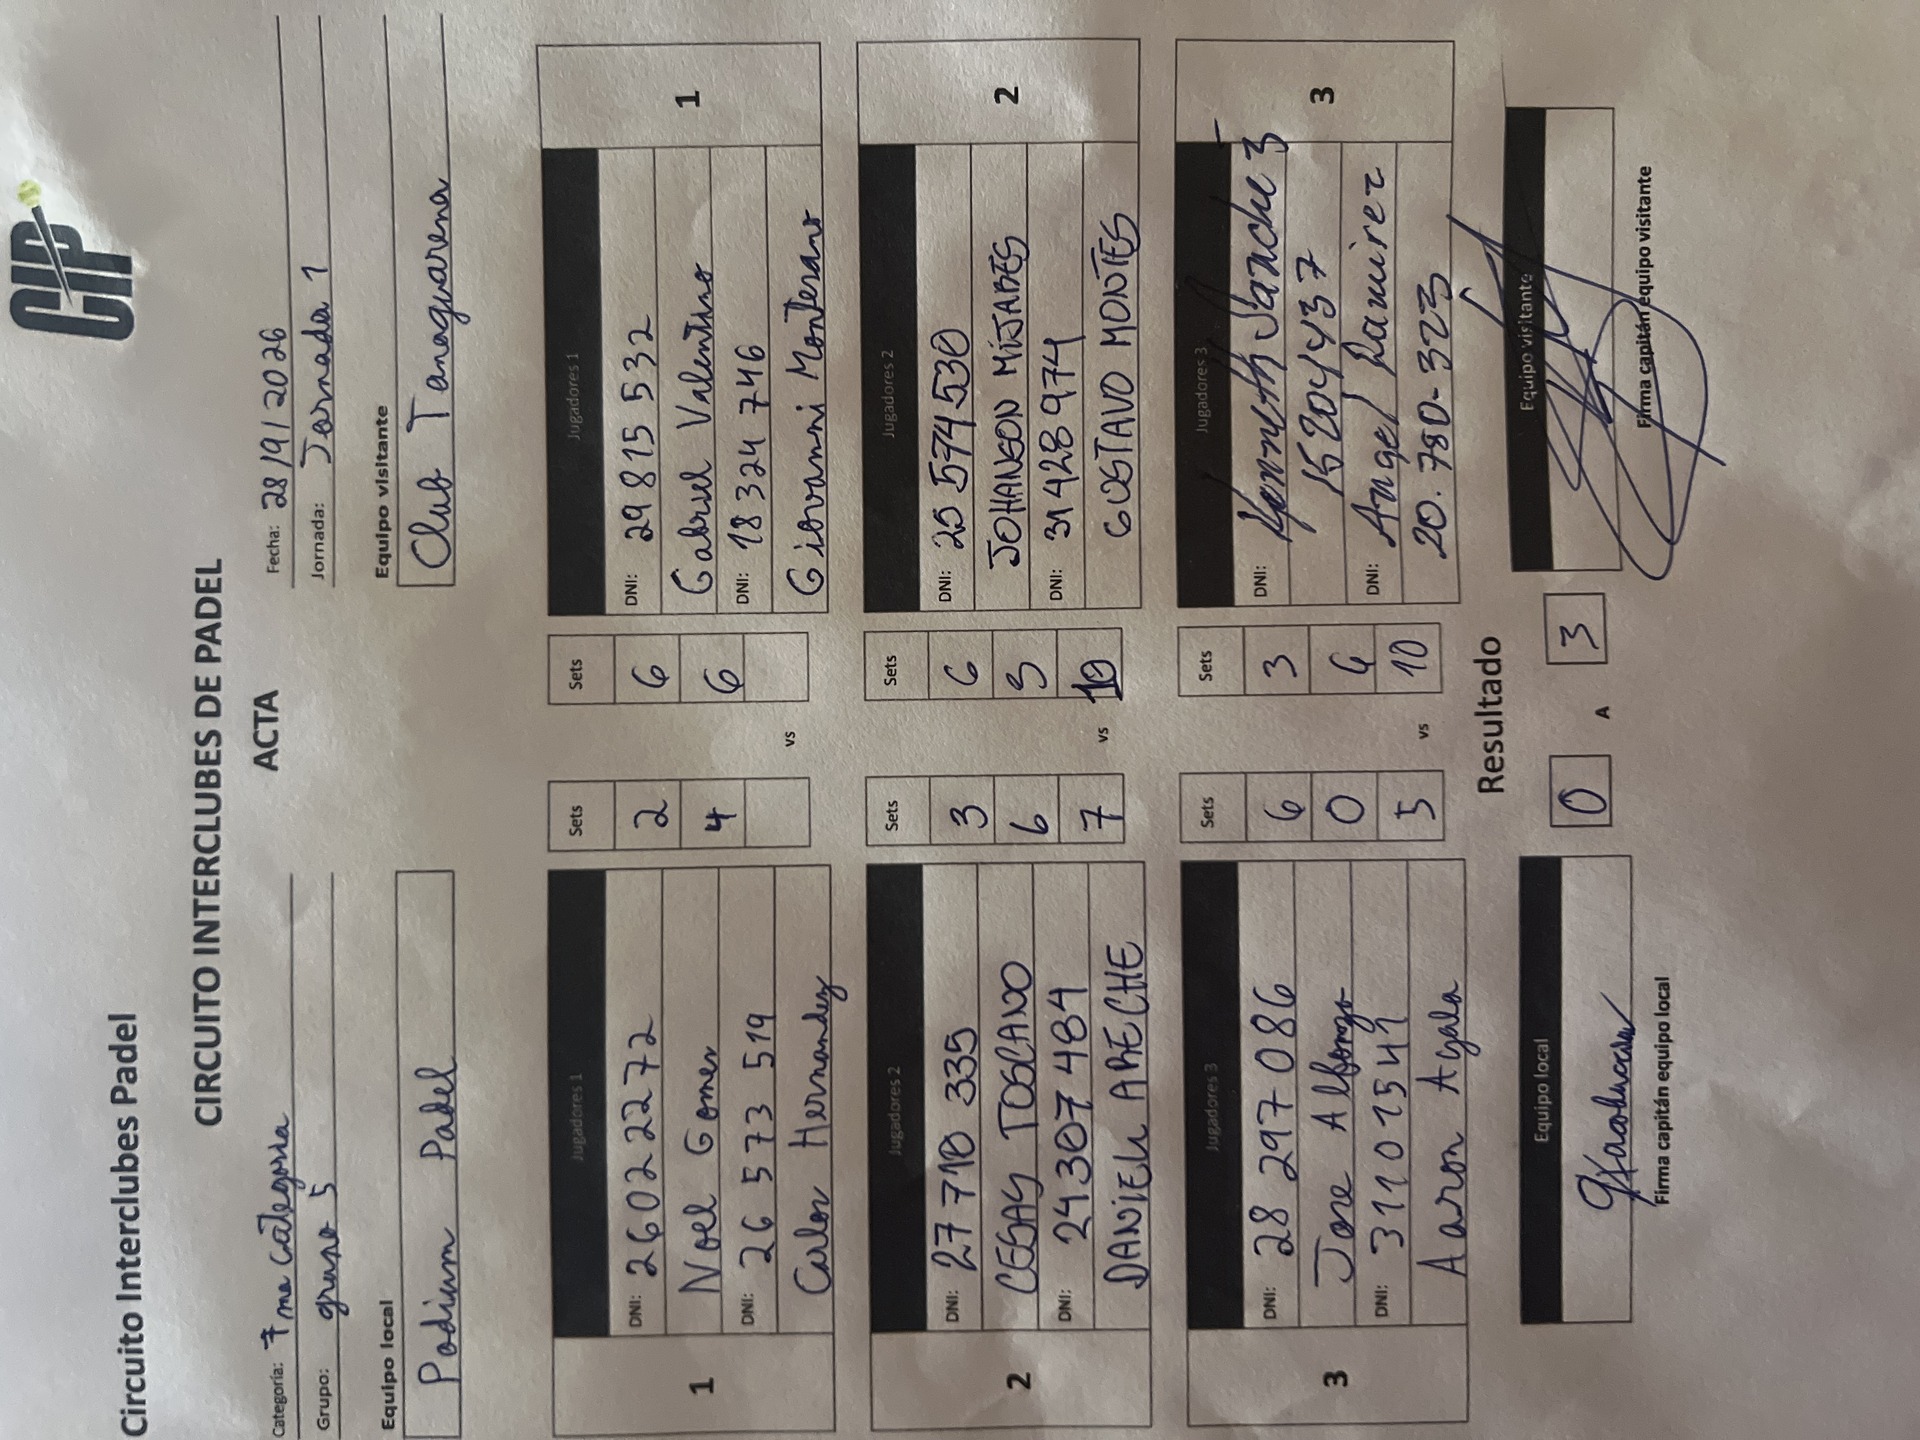 CIP
Circuito Interclubes Padel
CIRCUITO INTERCLUBES DE PADEL
ACTA
Categoría: 7ma Categoria
Fecha: 28/9/2026
Grupo: grupo 5
Jornada: Jornada 1
Equipo local
Equipo visitante
Podium Padel
Club Tanaguarena
1
Jugadores 1
Sets
Sets
Jugadores 1
1
DNI: 26022272
2
6
DNI: 29815532
Noel Gomes
4
6
Gabriel Valentino
DNI: 26 573 519
DNI: 18 324 746
Carlos Hernandez
vs
Giovanni Montesano
2
Jugadores 2
Sets
Sets
Jugadores 2
2
DNI: 27 710 335
3
6
DNI: 25 574 530
CESAY TOSCANO
6
5
JOHANSON MIJARES
DNI: 24 307 484
7
vs
10
DNI: 31 428 974
DANIEL ARECHE
GUSTAVO MONTES
3
Jugadores 3
Sets
Sets
Jugadores 3
3
DNI: 28 297 086
6
3
DNI: Kenneth Sanchez
Jose Alfonzo
0
6
15204437
DNI: 311 01541
5
vs
10
DNI: Angel Ramirez
Aaron Ayala
20.780-323
Resultado
Equipo local
0
A
3
Equipo visitante
Firma capitán equipo local
Firma capitán equipo visitante